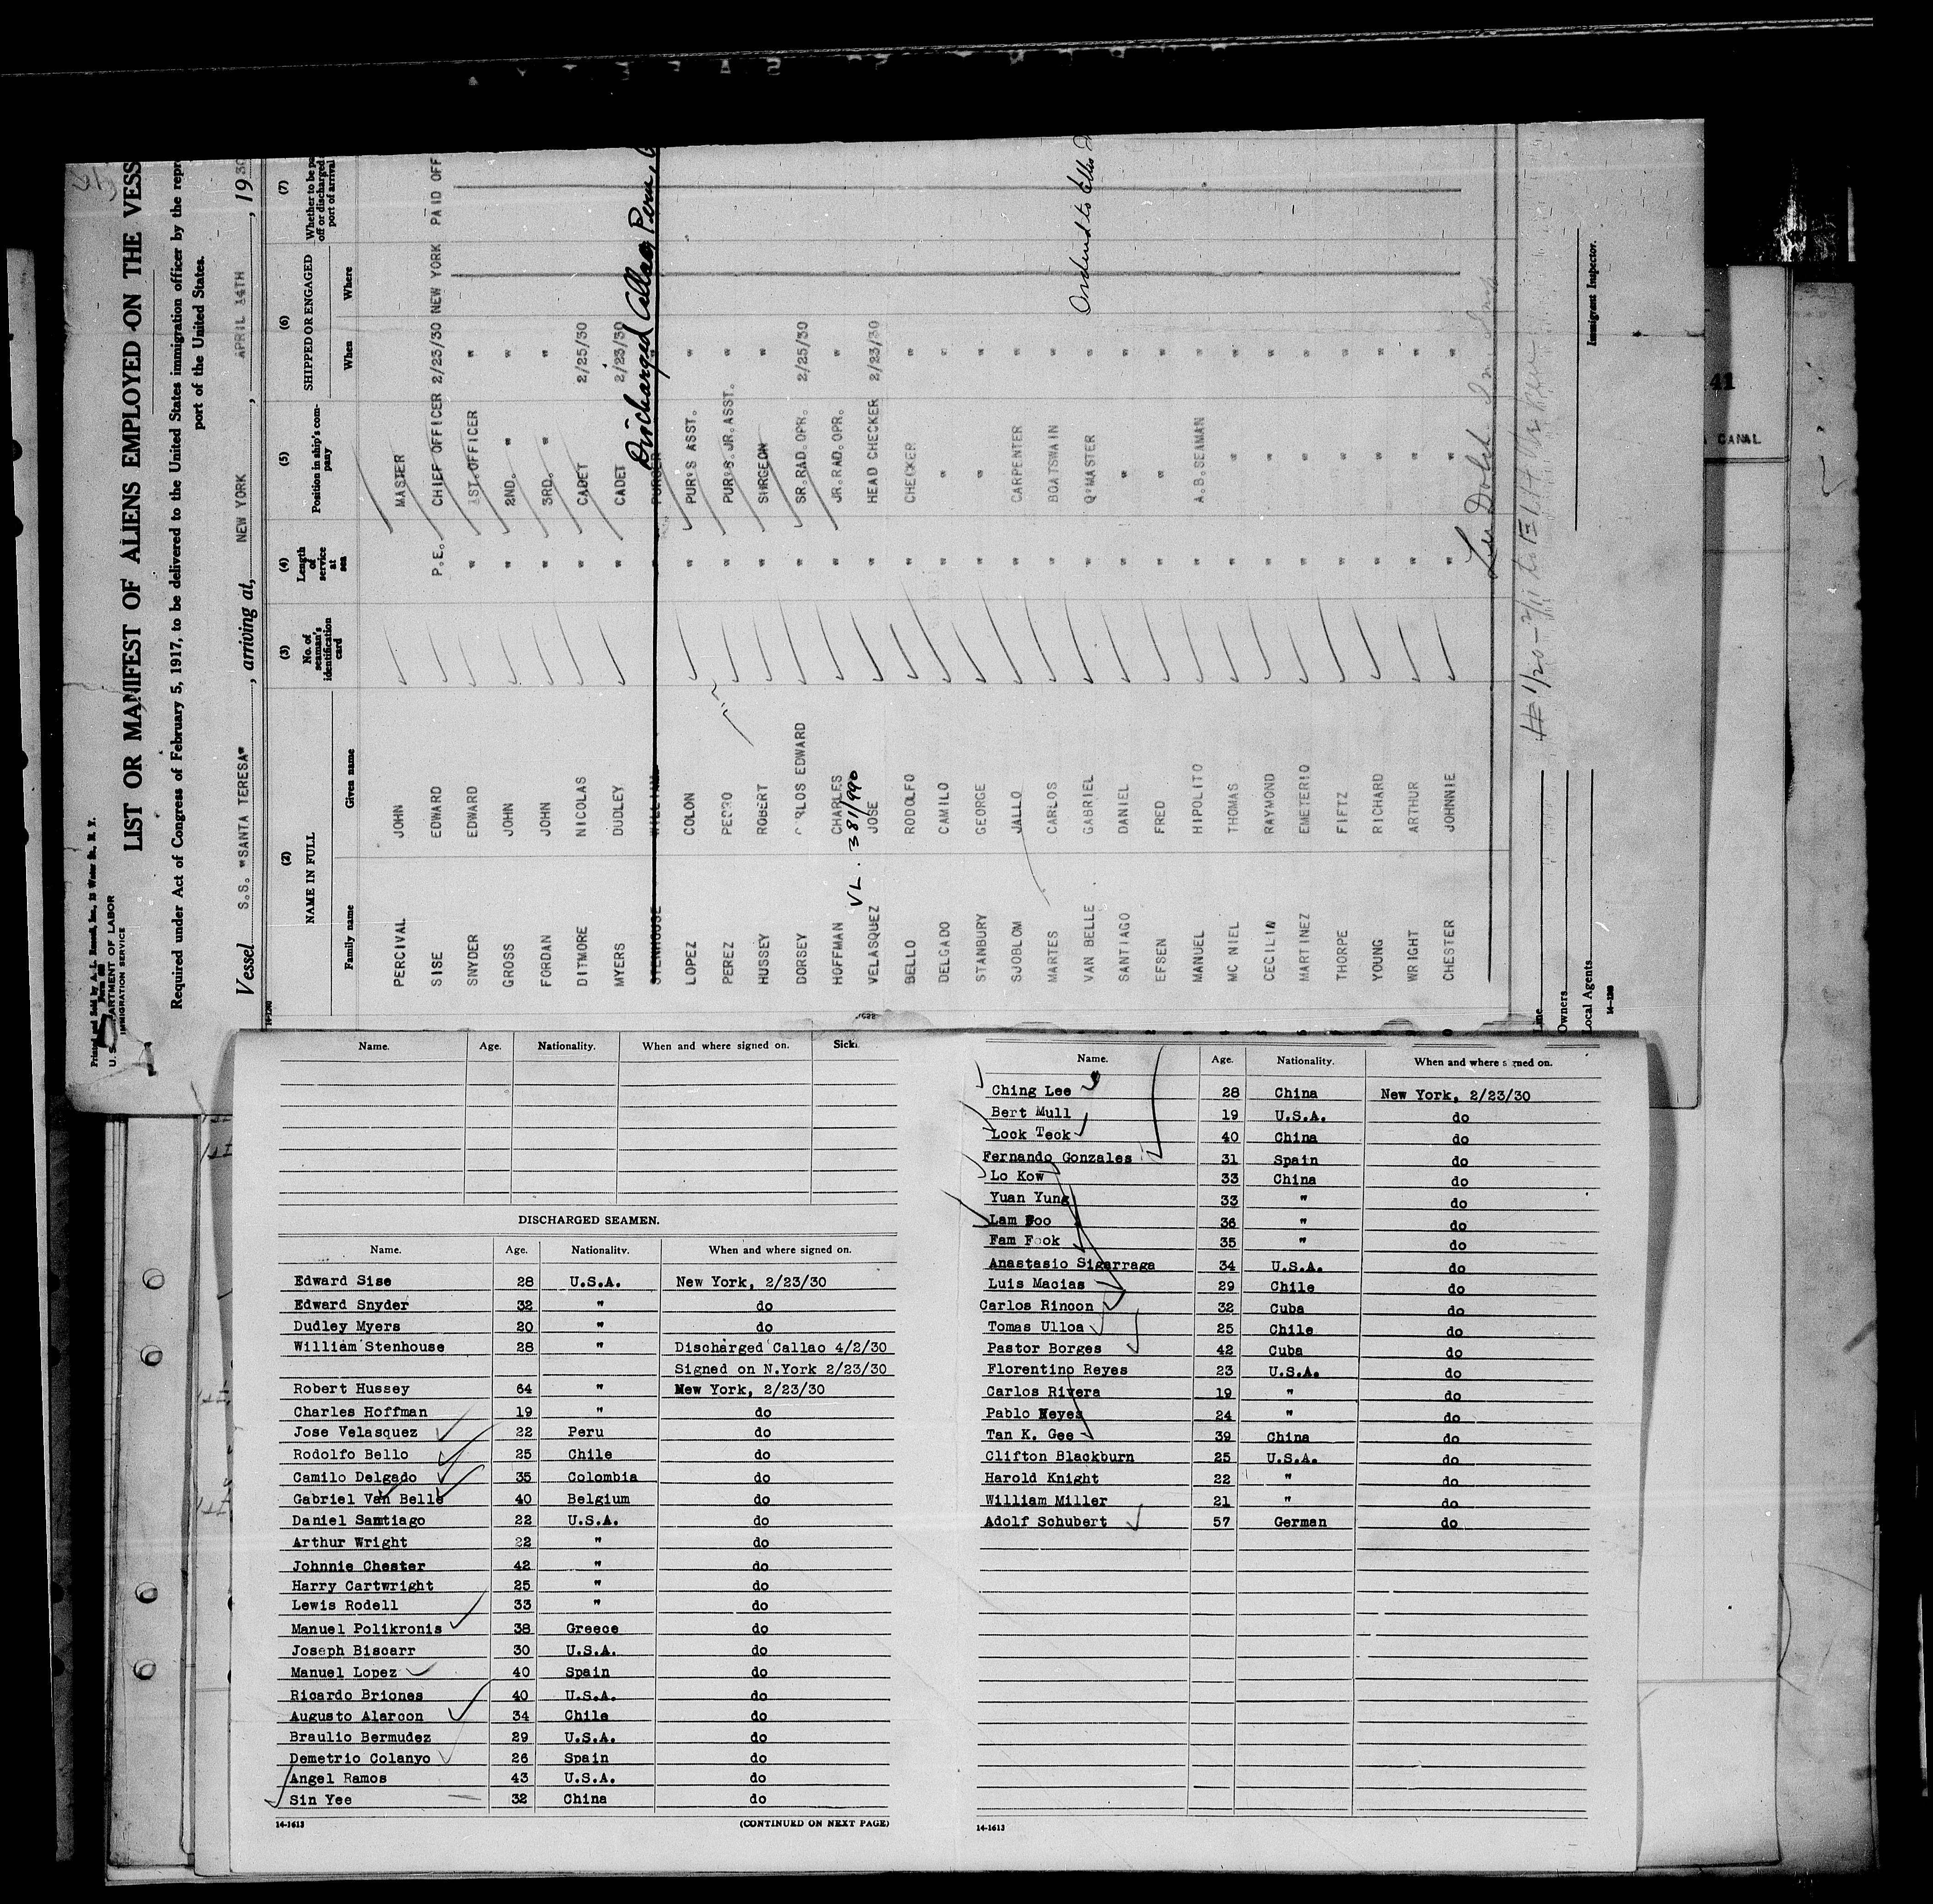 Printed and Sold by A. L. Russell, Inc., 32 Water St., N. Y.
Form 689
U.S. DEPARTMENT OF LABOR
IMMIGRATION SERVICE
LIST OR MANIFEST OF ALIENS EMPLOYED ON THE VESS
Required under Act of Congress of February 5, 1917, to be delivered to the United States immigration officer by the repr
port of the United States.
Vessel S.S. "SANTA TERESA", arriving at, NEW YORK, APRIL 14TH, 1930
(2) (3) (4) (5) (6) (7)
NAME IN FULL No. of seaman's identification card Length of service at sea Position in ship's company SHIPPED OR ENGAGED Whether to be pa off or discharged port of arrival
Family name Given name When Where
PERCIVAL JOHN MASTER
SISE EDWARD P.E. CHIEF OFFICER 2/23/30 NEW YORK PAID OFF
SNYDER EDWARD " 1ST.OFFICER "
GROSS JOHN " 2ND. " "
FORDAN JOHN " 3RD. " "
DITMORE NICOLAS " CADET 2/25/30
MYERS DUDLEY " CADET 2/23/30
STENHOUSE WILLIAM " PURSER Discharged Callao Peru,
LOPEZ COLON " PUR'S ASST. "
PEREZ PEDRO " PUR'S.JR.ASST. "
HUSSEY ROBERT " SURGEON "
DORSEY CARLOS EDWARD " SR.RAD.OPR. 2/25/30
HOFFMAN CHARLES " JR.RAD.OPR. "
VL. 381/990
VELASQUEZ JOSE " HEAD CHECKER 2/23/30
BELLO RODOLFO " CHECKER "
DELGADO CAMILO " " "
STANBURY GEORGE " " "
SJOBLOM JALLO " CARPENTER "
MARTES CARLOS " BOATSWAIN "
VAN BELLE GABRIEL " Q'MASTER " Ordered to Ellis
SANTIAGO DANIEL " " "
EFSEN FRED " " "
MANUEL HIPOLITO " A.B.SEAMAN "
MC NIEL THOMAS " " "
CECILIN RAYMOND " " "
MARTINEZ EMETERIO " " "
THORPE FIFTZ " " "
YOUNG RICHARD " " "
WRIGHT ARTHUR " " "
CHESTER JOHNNIE " " "
Line
Owners
Local Agents
Immigrant Inspector.
14-1240
41
CANAL
Name. Age. Nationality. When and where signed on.
DISCHARGED SEAMEN.
Name. Age. Nationality. When and where signed on.
Edward Sise 28 U.S.A. New York, 2/23/30
Edward Snyder 32 " do
Dudley Myers 20 " do
William Stenhouse 28 " Discharged Callao 4/2/30
Signed on N.York 2/23/30
Robert Hussey 64 " New York, 2/23/30
Charles Hoffman 19 " do
Jose Velasquez 22 Peru do
Rodolfo Bello 25 Chile do
Camilo Delgado 35 Colombia do
Gabriel Van Belle 40 Belgium do
Daniel Santiago 22 U.S.A. do
Arthur Wright 22 " do
Johnnie Chester 42 " do
Harry Cartwright 25 " do
Lewis Rodell 33 " do
Manuel Polikronis 38 Greece do
Joseph Biscarr 30 U.S.A. do
Manuel Lopez 40 Spain do
Ricardo Briones 40 U.S.A. do
Augusto Alarcon 34 Chile do
Braulio Bermudez 29 U.S.A. do
Demetrio Colanyo 26 Spain do
Angel Ramos 43 U.S.A. do
Sin Yee 32 China do
14-1613 (CONTINUED ON NEXT PAGE)
Name. Age. Nationality. When and where signed on.
Ching Lee 28 China New York, 2/23/30
Bert Mull 19 U.S.A. do
Look Teck 40 China do
Fernando Gonzales 31 Spain do
Lo Kow 33 China do
Yuan Yung 33 " do
Lam Foo 36 " do
Fam Fook 35 " do
Anastasio Sigarraga 34 U.S.A. do
Luis Macias 29 Chile do
Carlos Rincon 32 Cuba do
Tomas Ulloa 25 Chile do
Pastor Borges 42 Cuba do
Florentino Reyes 23 U.S.A. do
Carlos Rivera 19 " do
Pablo Neyes 24 " do
Tan K. Gee 39 China do
Clifton Blackburn 25 U.S.A. do
Harold Knight 22 " do
William Miller 21 " do
Adolf Schubert 57 German do
14-1613